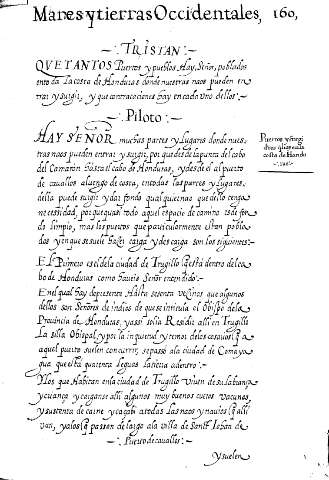 Mares y tierras Occidentales, 160,
–:– TRISTAN –:–
QUE TANTOS Puertos y pueblos Hay, Señor, poblados
en toda La costa de Honduras donde nuestras naos pueden en
trar y surgir, y que contrataciones hay en cada Uno dellos :–
–:– Piloto –:–
HAY SEÑOR muchas partes y Lugares donde nues
tras naos pueden entrar y surgir, por que desde la punta del cabo
del Camaron hasta el cabo de Honduras, y desde el al puerto
de cavallos al luengo de costa, en todas las partes y Lugares,
della puede surgir y dar fondo qual quier nao que dello tenga
necessidad, por que quasi todo aquel espacio de camino es de fon
do limpio, mas los puertos que particularmente estan pobla
dos y en que se suele hazer carga y descarga son los siguientes :–
Puertos y surgi
deros que ay en la
costa de Hondu
ras
EL Primero es el de la ciudad de Trugillo que esta dentro del ca
bo de Honduras como haveis Señor entendido :–
En el qual hay de presente Hasta setenta vezinos que algunos
dellos son Señores de indios de que se intitula el Obispo de la
Provincia de Honduras, y assi solia Residir alli en Trugillo
La silla Obispal, y por la inquietud y temor de los cosarios que a
aquel puerto suelen concurrir, se passó a la ciudad de Comaya
gua que esta quarenta Leguas La tierra adentro :–
Los que Habitan en la ciudad de Trugillo Viven de su labrança
y criança y carganse alli algunos muy buenos cueros vacunos,
y sustenta de carne y caçabi a todas Las naos y navios que alli
van, y a los que passan de largo a la villa de Sanct Johan de
–:– Puerto de cavallos –:–
Y suelen